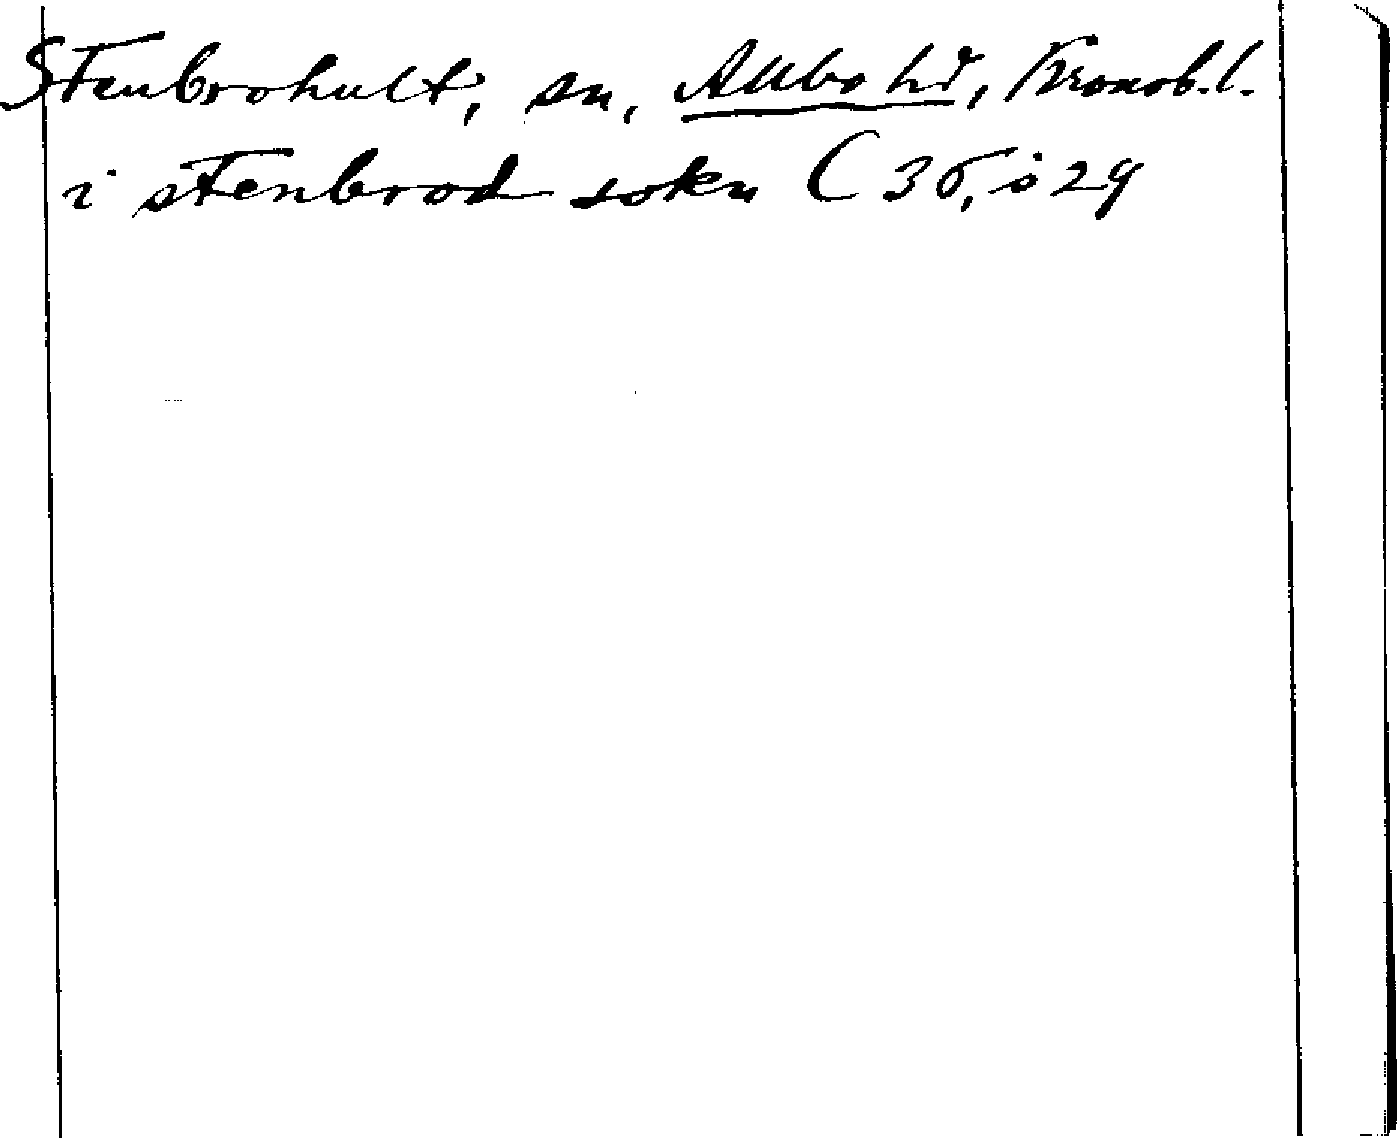 Stenbrohult, sn, Allbo hd, Kronob. l.
i stenbrod sokn C 36, s 29